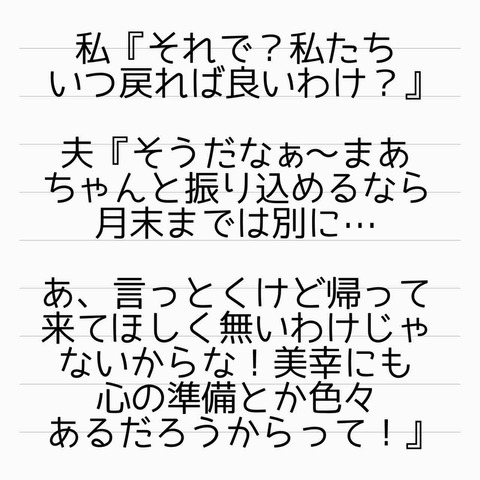 私『それで？私たち
いつ戻れば良いわけ？』
夫『そうだなぁ〜まあ
ちゃんと振り込めるなら
月末までは別に…
あ、言っとくけど帰って
来てほしく無いわけじゃ
ないからな！美幸にも
心の準備とか色々
あるだろうからって！』